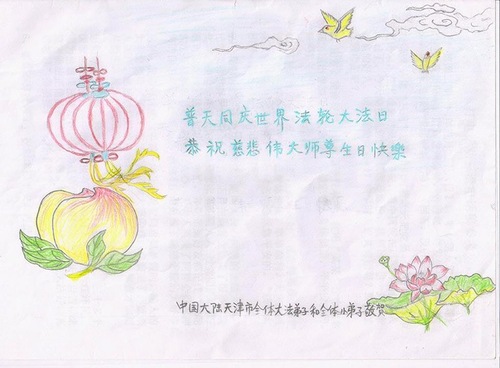 普天同庆世界法轮大法日
恭祝慈悲伟大师尊生日快樂
中国大陆天津市全体大法弟子和全体小弟子敬贺